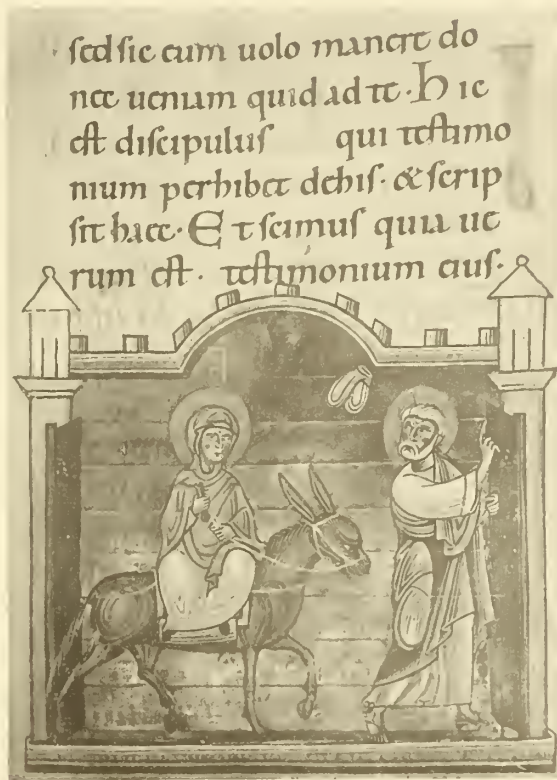 sed sic eum uolo manere do
nec ueniam quid ad te · Hic
est discipulus qui testimo
nium perhibet dehis · & scrip
sit haec · Et scimus quia ue
rum est · testimonium eius ·